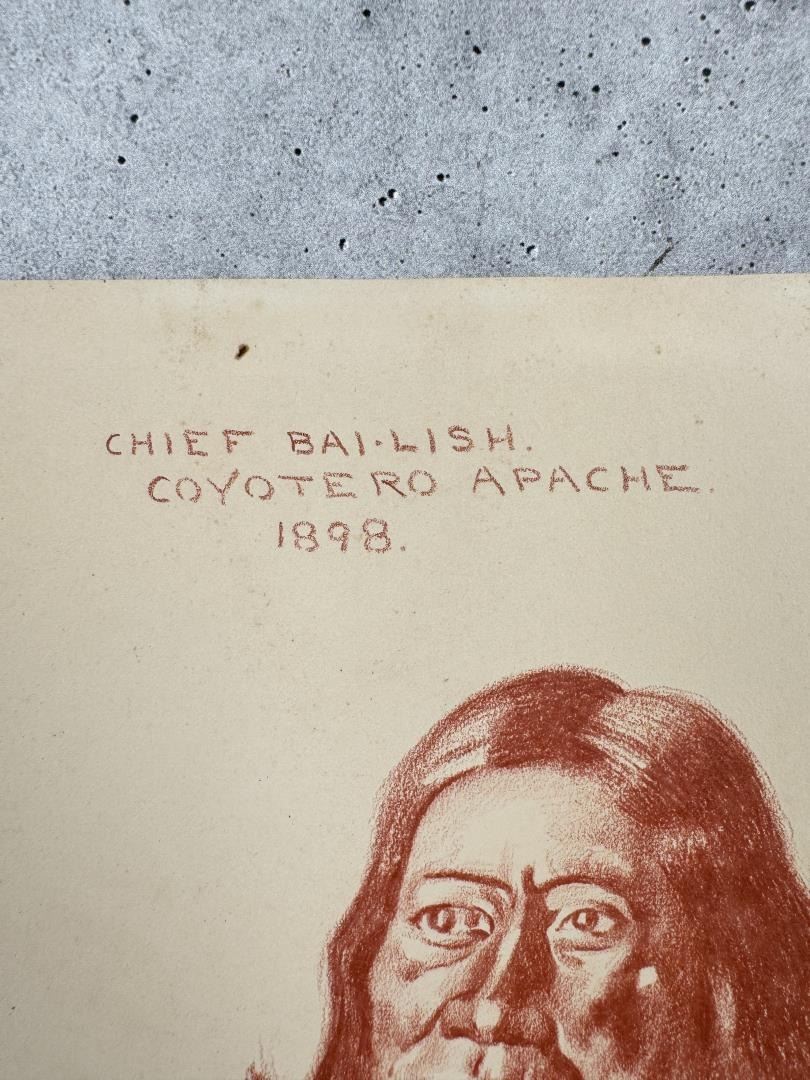 CHIEF BAI·LISH.
COYOTERO APACHE.
1898.